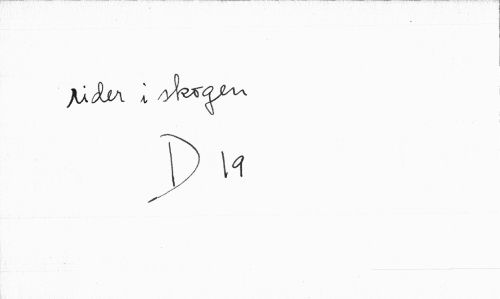 rider i skogen
D 19